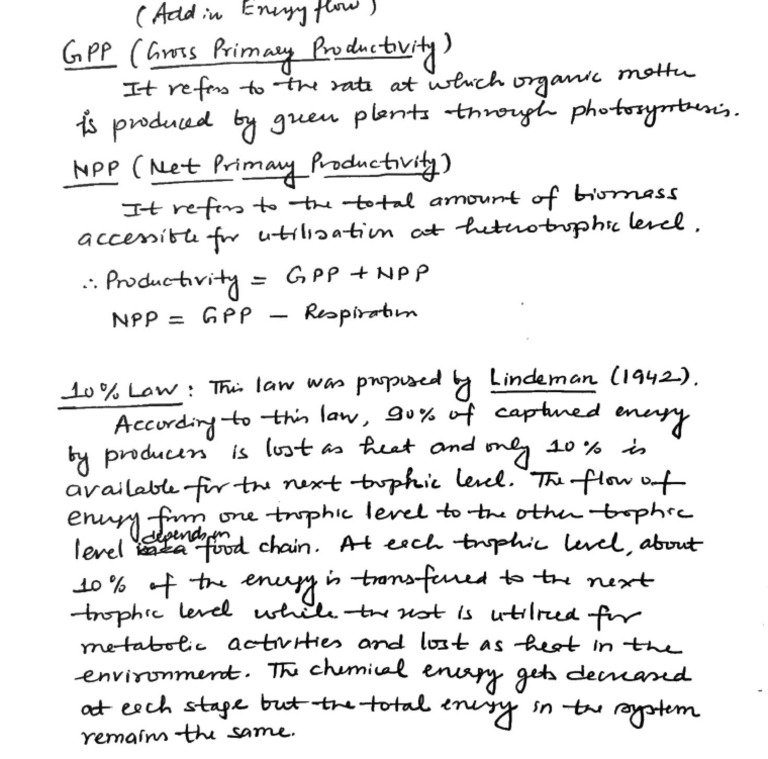 (Add in Energy flow)
GPP (Gross Primary Productivity)
It refers to the rate at which organic matter
is produced by green plants through photosynthesis.
NPP (Net Primary Productivity)
It refers to the total amount of biomass
accessible for utilisation at heterotrophic level.
∴ Productivity = GPP + NPP
NPP = GPP - Respiration
10% Law : This law was proposed by Lindeman (1942).
According to this law, 90% of captured energy
by producers is lost as heat and only 10% is
available for the next trophic level. The flow of
energy from one trophic level to the other trophic
level depends on food chain. At each trophic level, about
10% of the energy is transferred to the next
trophic level while the rest is utilized for
metabolic activities and lost as heat in the
environment. The chemical energy gets decreased
at each stage but the total energy in the system
remains the same.